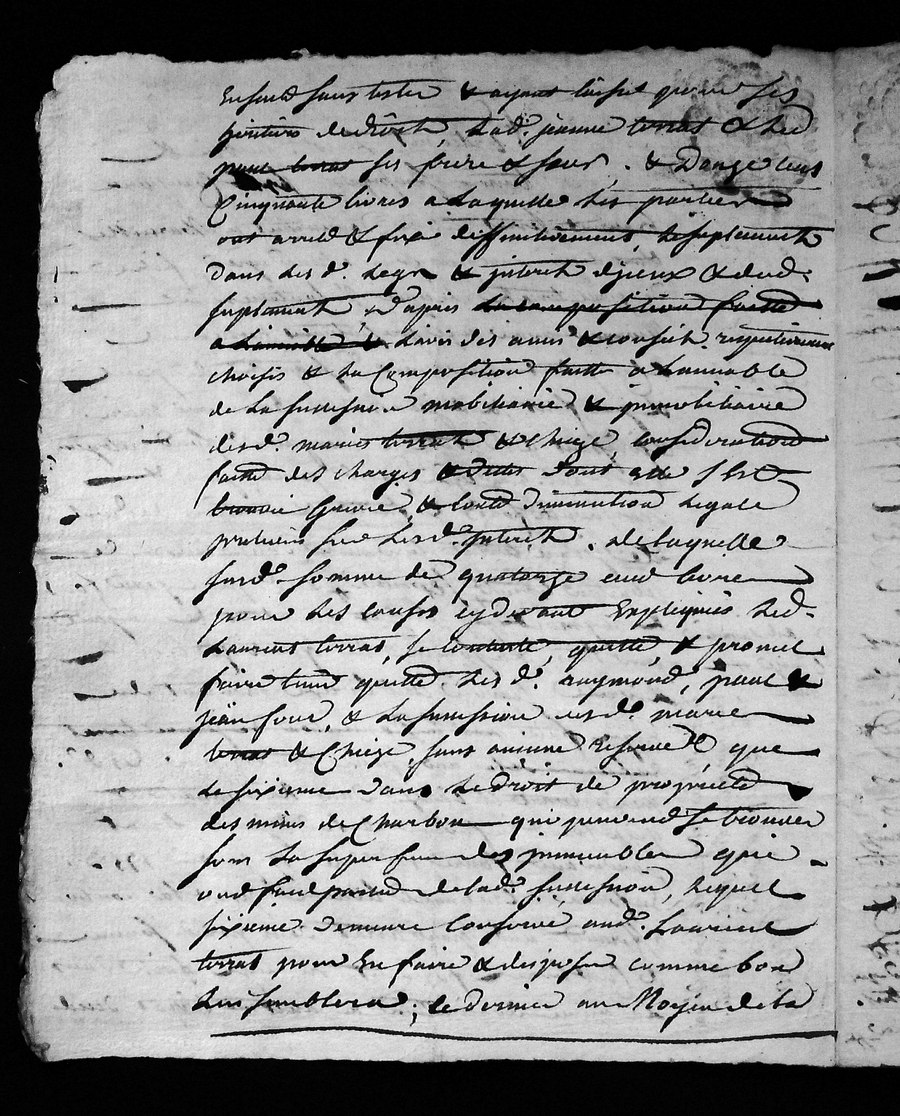 Enfand sans tester & ayant laissé pour ses
héritiers de droit, lad.e jeanne terras & led
paul terras ses frere & sœur. & Douze cens
Cinquante livres a laquelle les parties
ont arreté & fixé deffinitivement, le suplement
Dans les d. legs & interets d'jceux & dud.
suplement, d'apres la composition faitte
a l'amiable & Lavis des amis & conseils respectivement
choisis & La Composition faitte a Lamiable
de La succession mobiliaire & immobiliaire
desd. maries terras & Chieze, consideration
faitte des charges & dettes dont elle s'est
trouvée grevée, & toute diminution Legale
sur lesd. interets. de laquelle
susd.e somme de quatorze cens livres
pour les causes cy devant Expliquées led.
Laurens terras, se contente, quitte, & promet
faire tenir quitte les d. raymond, paul &
jean four, & la succession desd. maries
terras & Chieze, sans aucune reserve que
le sixieme dans le droit de proprieté
des mines de Charbon qui peuvent se trouver
sous la superficie des immeubles qui
ont fait partie de lad.e succession, lequel
sixieme demeure conservé aud. Laurens
terras pour En faire & disposer comme bon
Lui semblera; ce dernier au Moyen de la